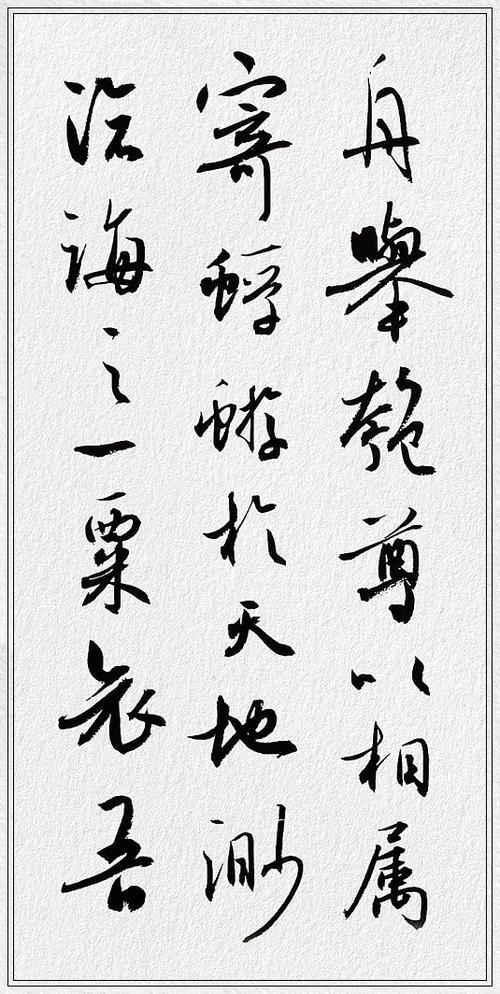 舟舉匏尊以相属
寄蜉蝣於天地渺
滄海之一粟哀吾